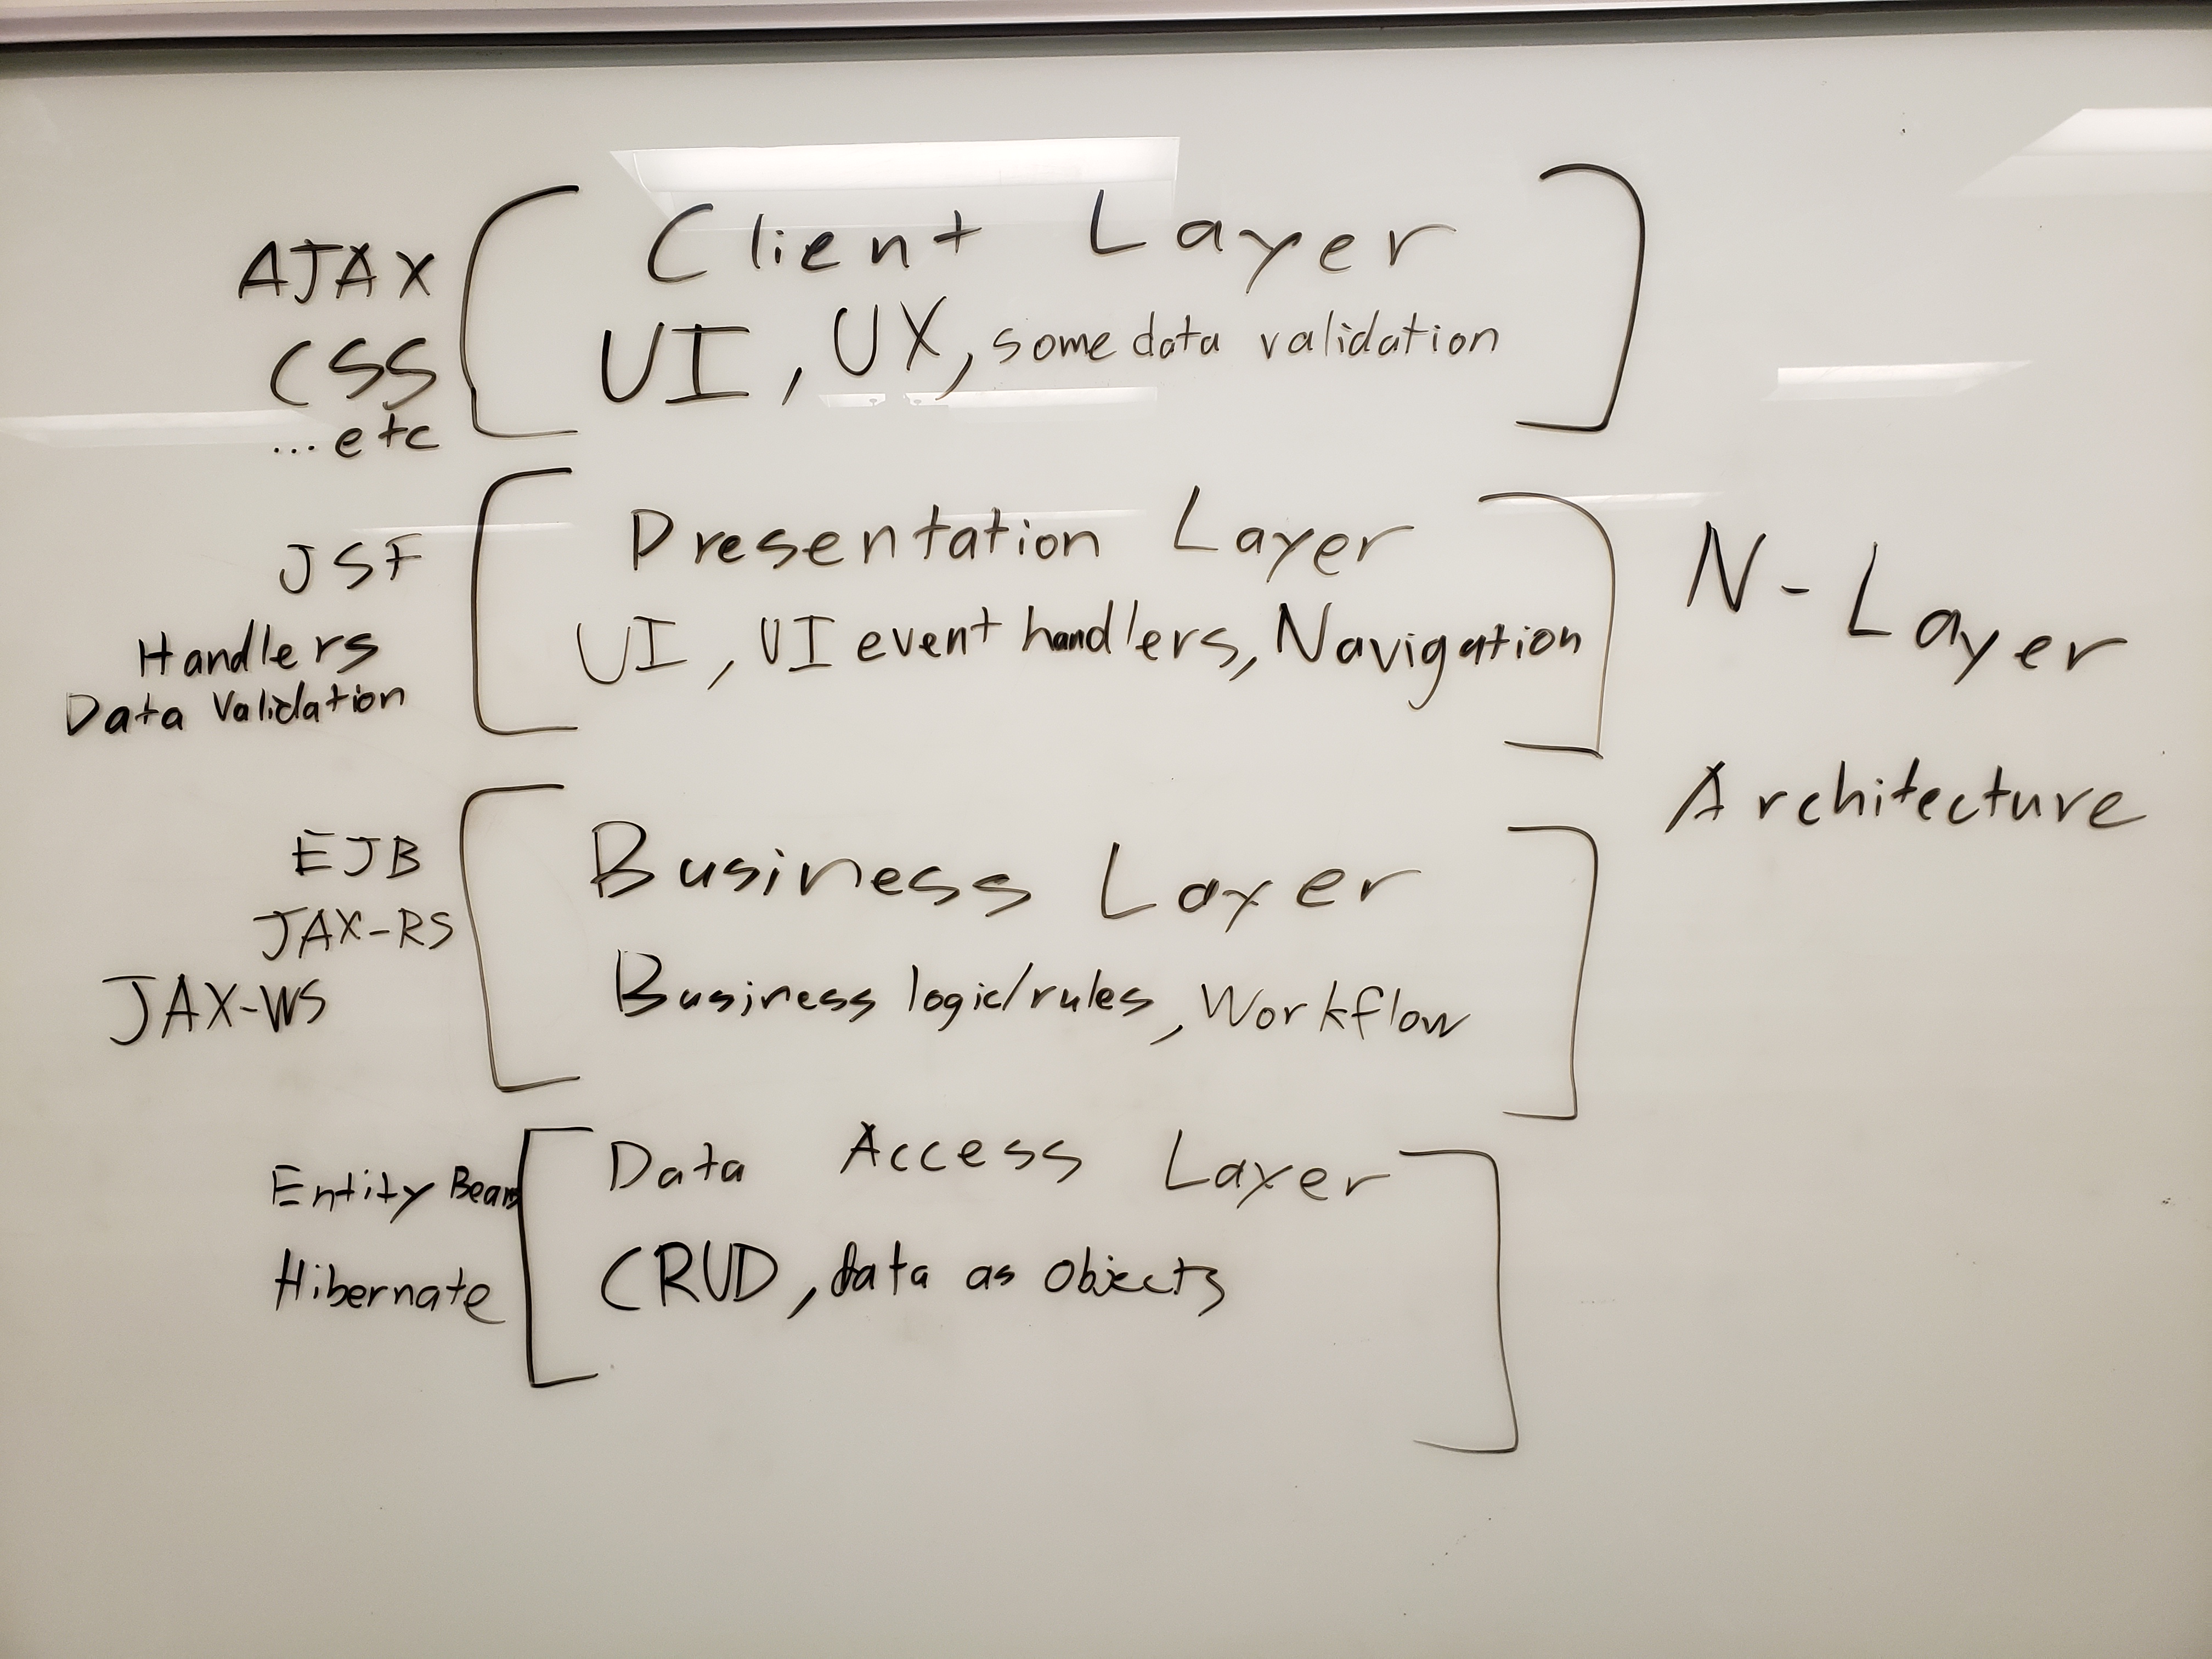 AJAX
CSS
...etc
Client Layer
UI, UX, some data validation
JSF
Handlers
Data Validation
Presentation Layer
UI, UI event handlers, Navigation
N-Layer
Architecture
EJB
JAX-RS
JAX-WS
Business Layer
Business logic/rules, Workflow
Entity Beans
Hibernate
Data Access Layer
CRUD, data as objects